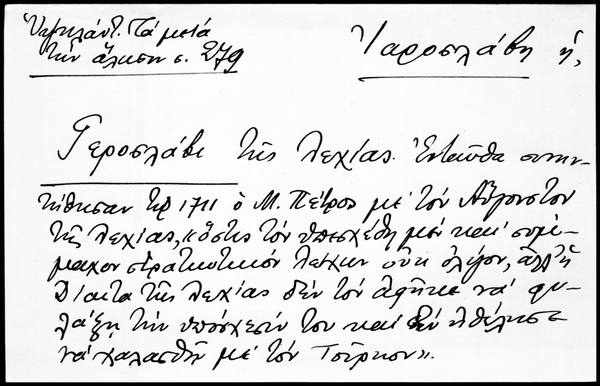 Ὑψηλάντ. Τά μετά
τήν ἅλωσιν σ. 279
Ἰαροσλάβη ἡ,
Γεροσλάβι τῆς Λεχίας. Ἐνταῦθα συνην-
τήθησαν τῷ 1711 ὁ Μ. Πέτρος μέ τόν Αὔγουστον
τῆς Λεχίας, "ὅστις τόν ὑπεσχέθη μέν καί σύμ-
μαχον στρατιωτικόν λεχικόν οὐκ ὀλίγον, ἀλλ' ἡ
Δίαιτα τῆς Λεχίας δέν τόν ἀφῆκε νά φυ-
λάξῃ τήν ὑπόσχεσίν του καί δέν ἠθέλησε
νά χαλασθῇ μέ τόν Τοῦρκον".